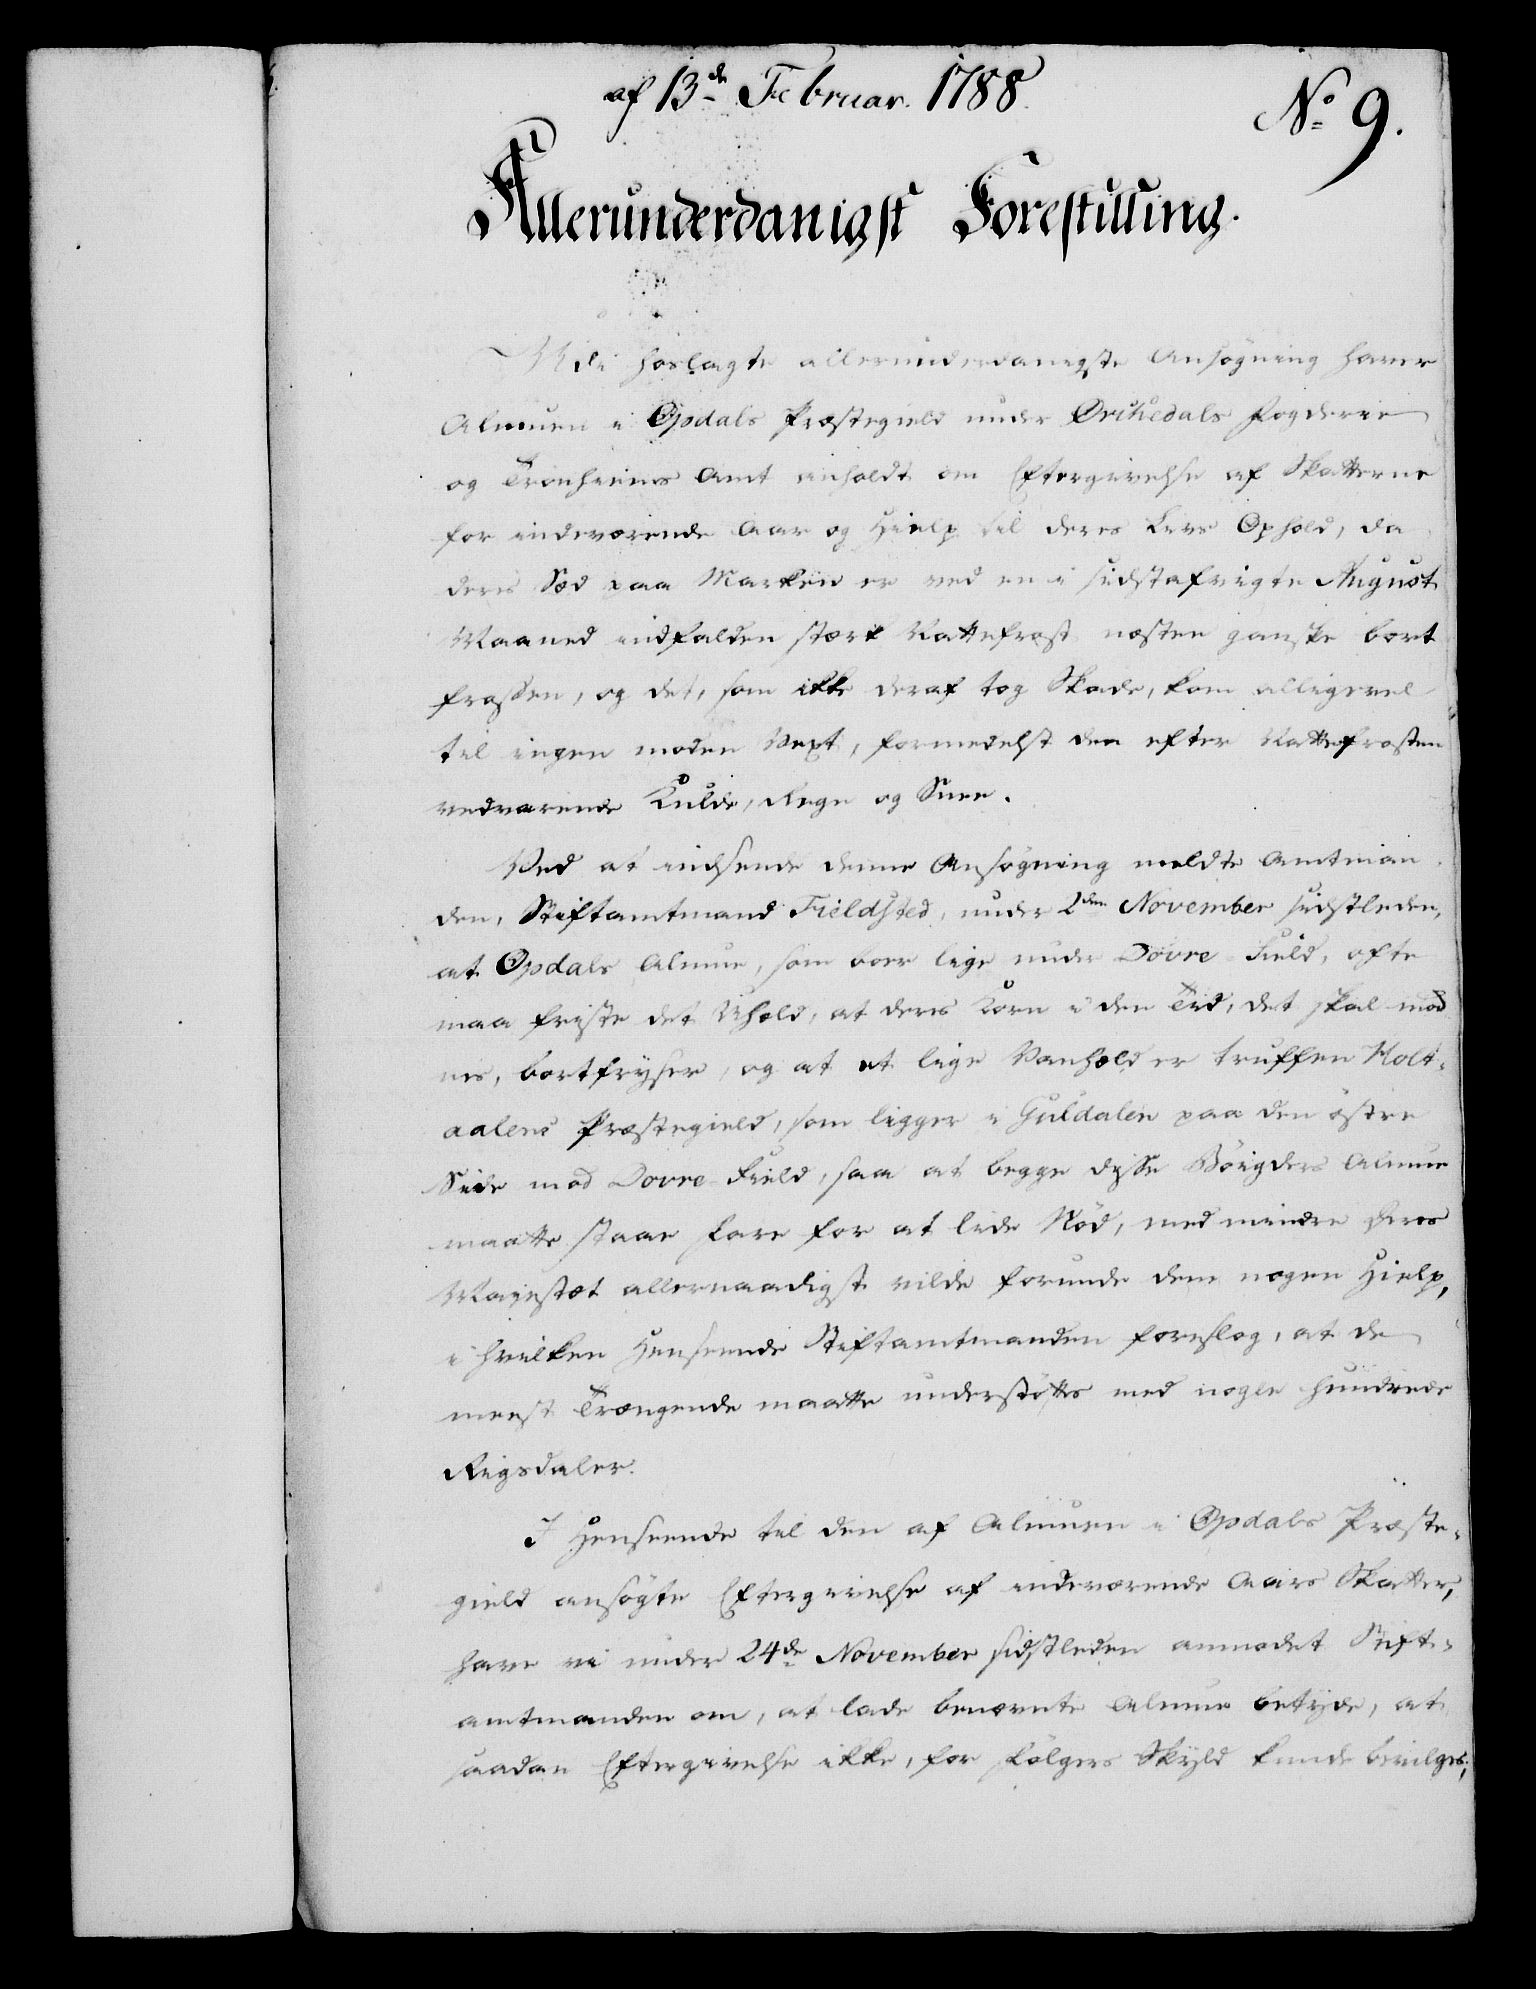 af 13de Februar. 1788.
No 9.
Allerunderdanigst Forestilling.
I hoslagte allerunderdanigste Ansøgning haver
Almuen i Opdals Præstegield under Ørchedals Fogderie
og Tronhiems Amt anholdt om Eftergivelse af Skatterne
for indeværende Aar og Hielp til deres Livs Ophold, da
deres Sæd paa Marken er ved en i sidstafvigte August
Maaned indfalden stærk Nattefrost næsten ganske bort
frossen, og det, som ikke deraf tog Skade, kom alligevel
til ingen moden Vext, formedelst den efter Nattefrosten
vedvarende Kulde, Regn og Snee.
Ved at indsende denne Ansøgning meldte Amtman
den, Stiftamtmand Fieldsted, under 2den November sidstleden,
at Opdals Almue, som boer lige under Dovre-Field, ofte
maa friste det Uheld, at deres Korn i den Tid, det skal mod
nes, bortfryser, og at et lige Vanheld er truffen Holt-
aalens Præstegield, som ligger i Guldalen paa den östre
Side mod Dovre-Field, saa at begge disse Böigders Almue
maatte staae Fare for at lide Nöd, med mindre Deres
Majestæt allernaadigst vilde forunde dem nogen Hielp,
i hvilken Henseende Stiftamtmanden foreslog, at de
meest Trængende maatte understöttes med nogle hundrede
Rigsdaler.
I Henseende til den af Almuen i Opdals Præste-
gield ansögte Eftergivelse af indeværende Aars Skatter,
have vi under 24de November sidstleden anmodet Stift-
amtmanden om, at lade benævnte Almue betyde, at
saadan Eftergivelse ikke, for Fölgers Skyld kunde bevilges;